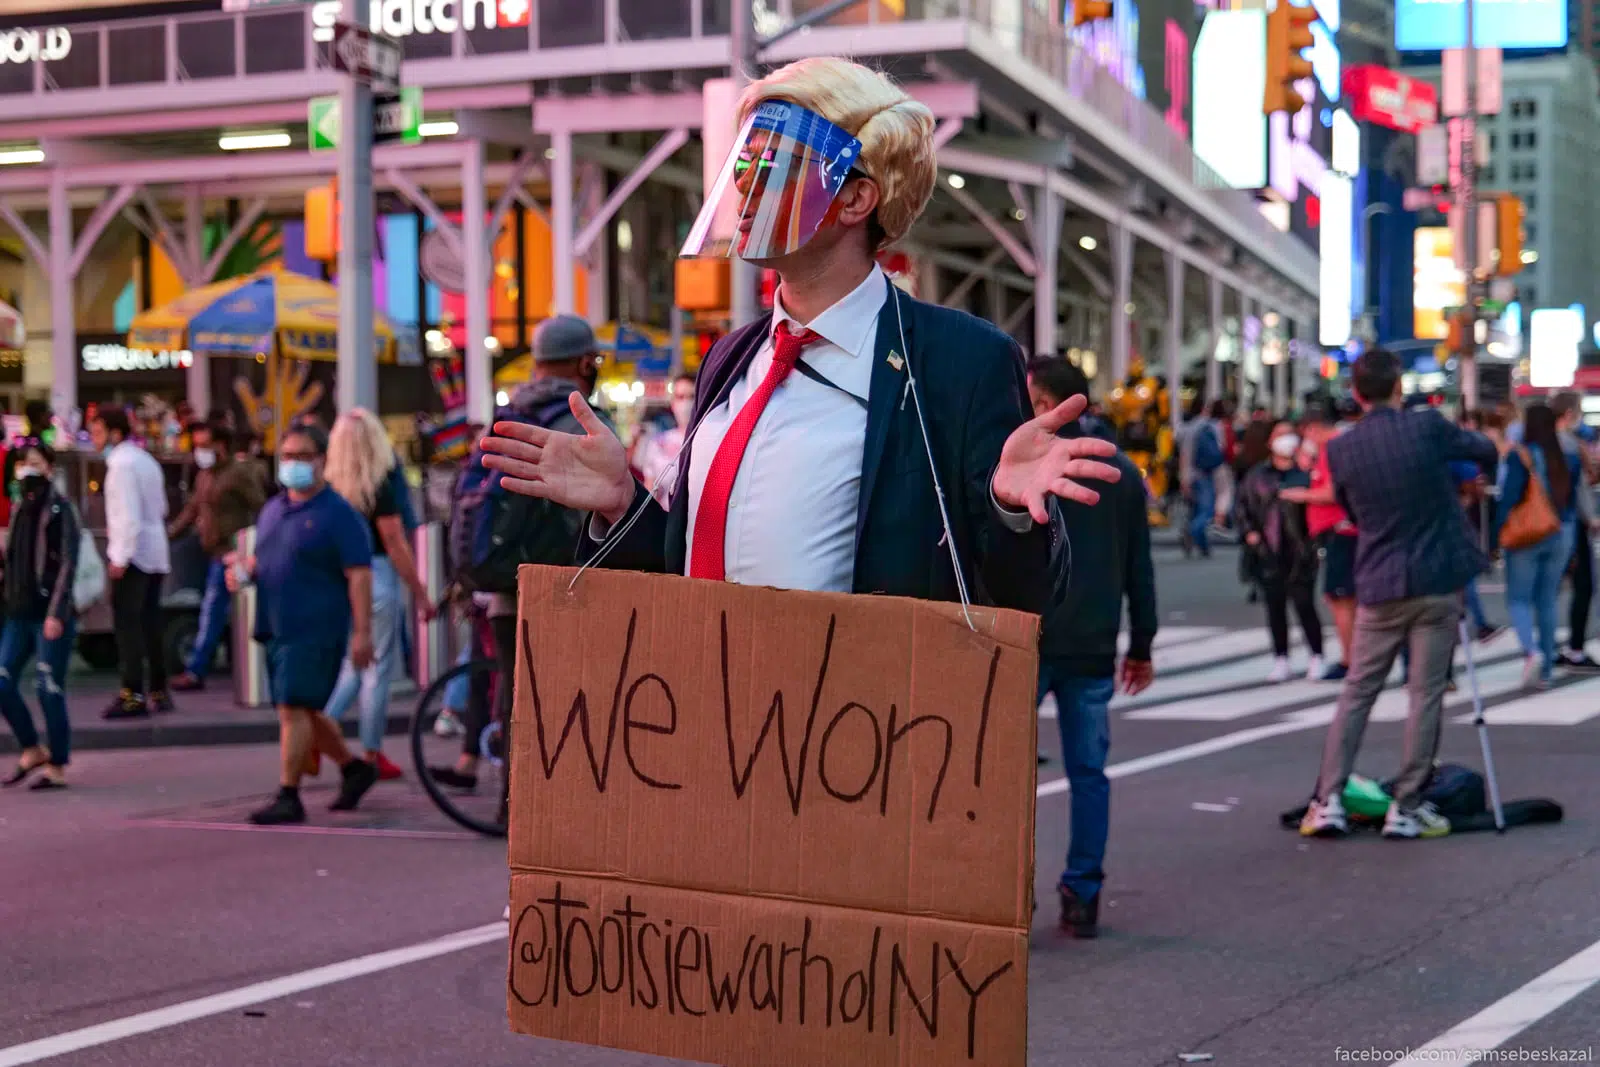 swatch
shield
swatch
We Won!
@tootsiewarholNY
facebook.com/samsebeskazal